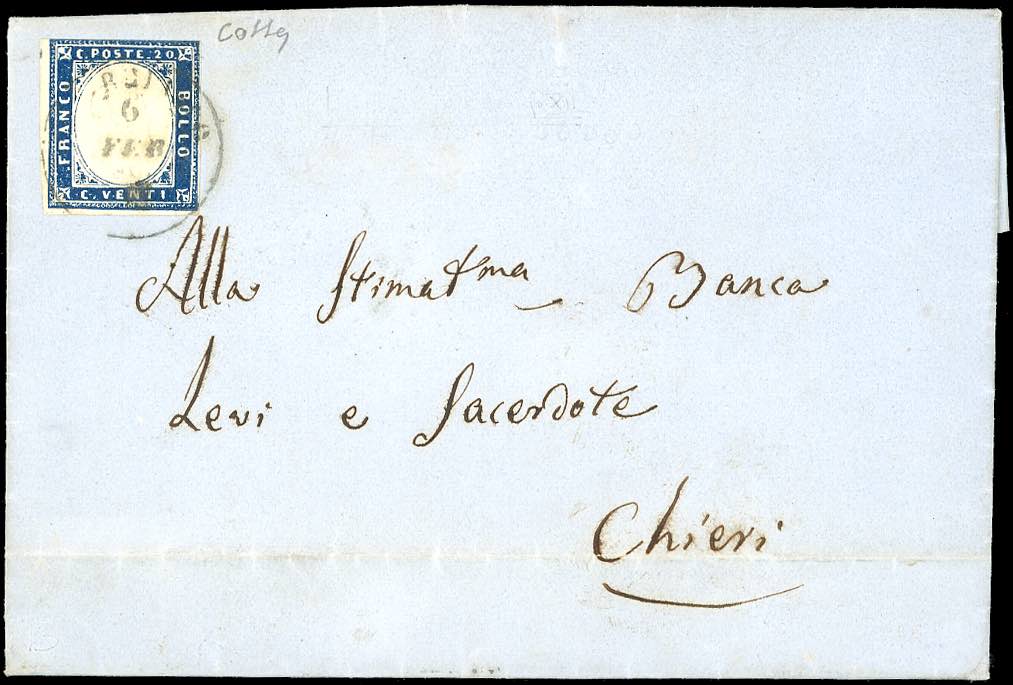 Colla
C. POSTE. 20.
FRANCO
BOLLO
C. VENTI
6
FEB
Alla Stimatma Banca
Levi e Sacerdote
Chieri